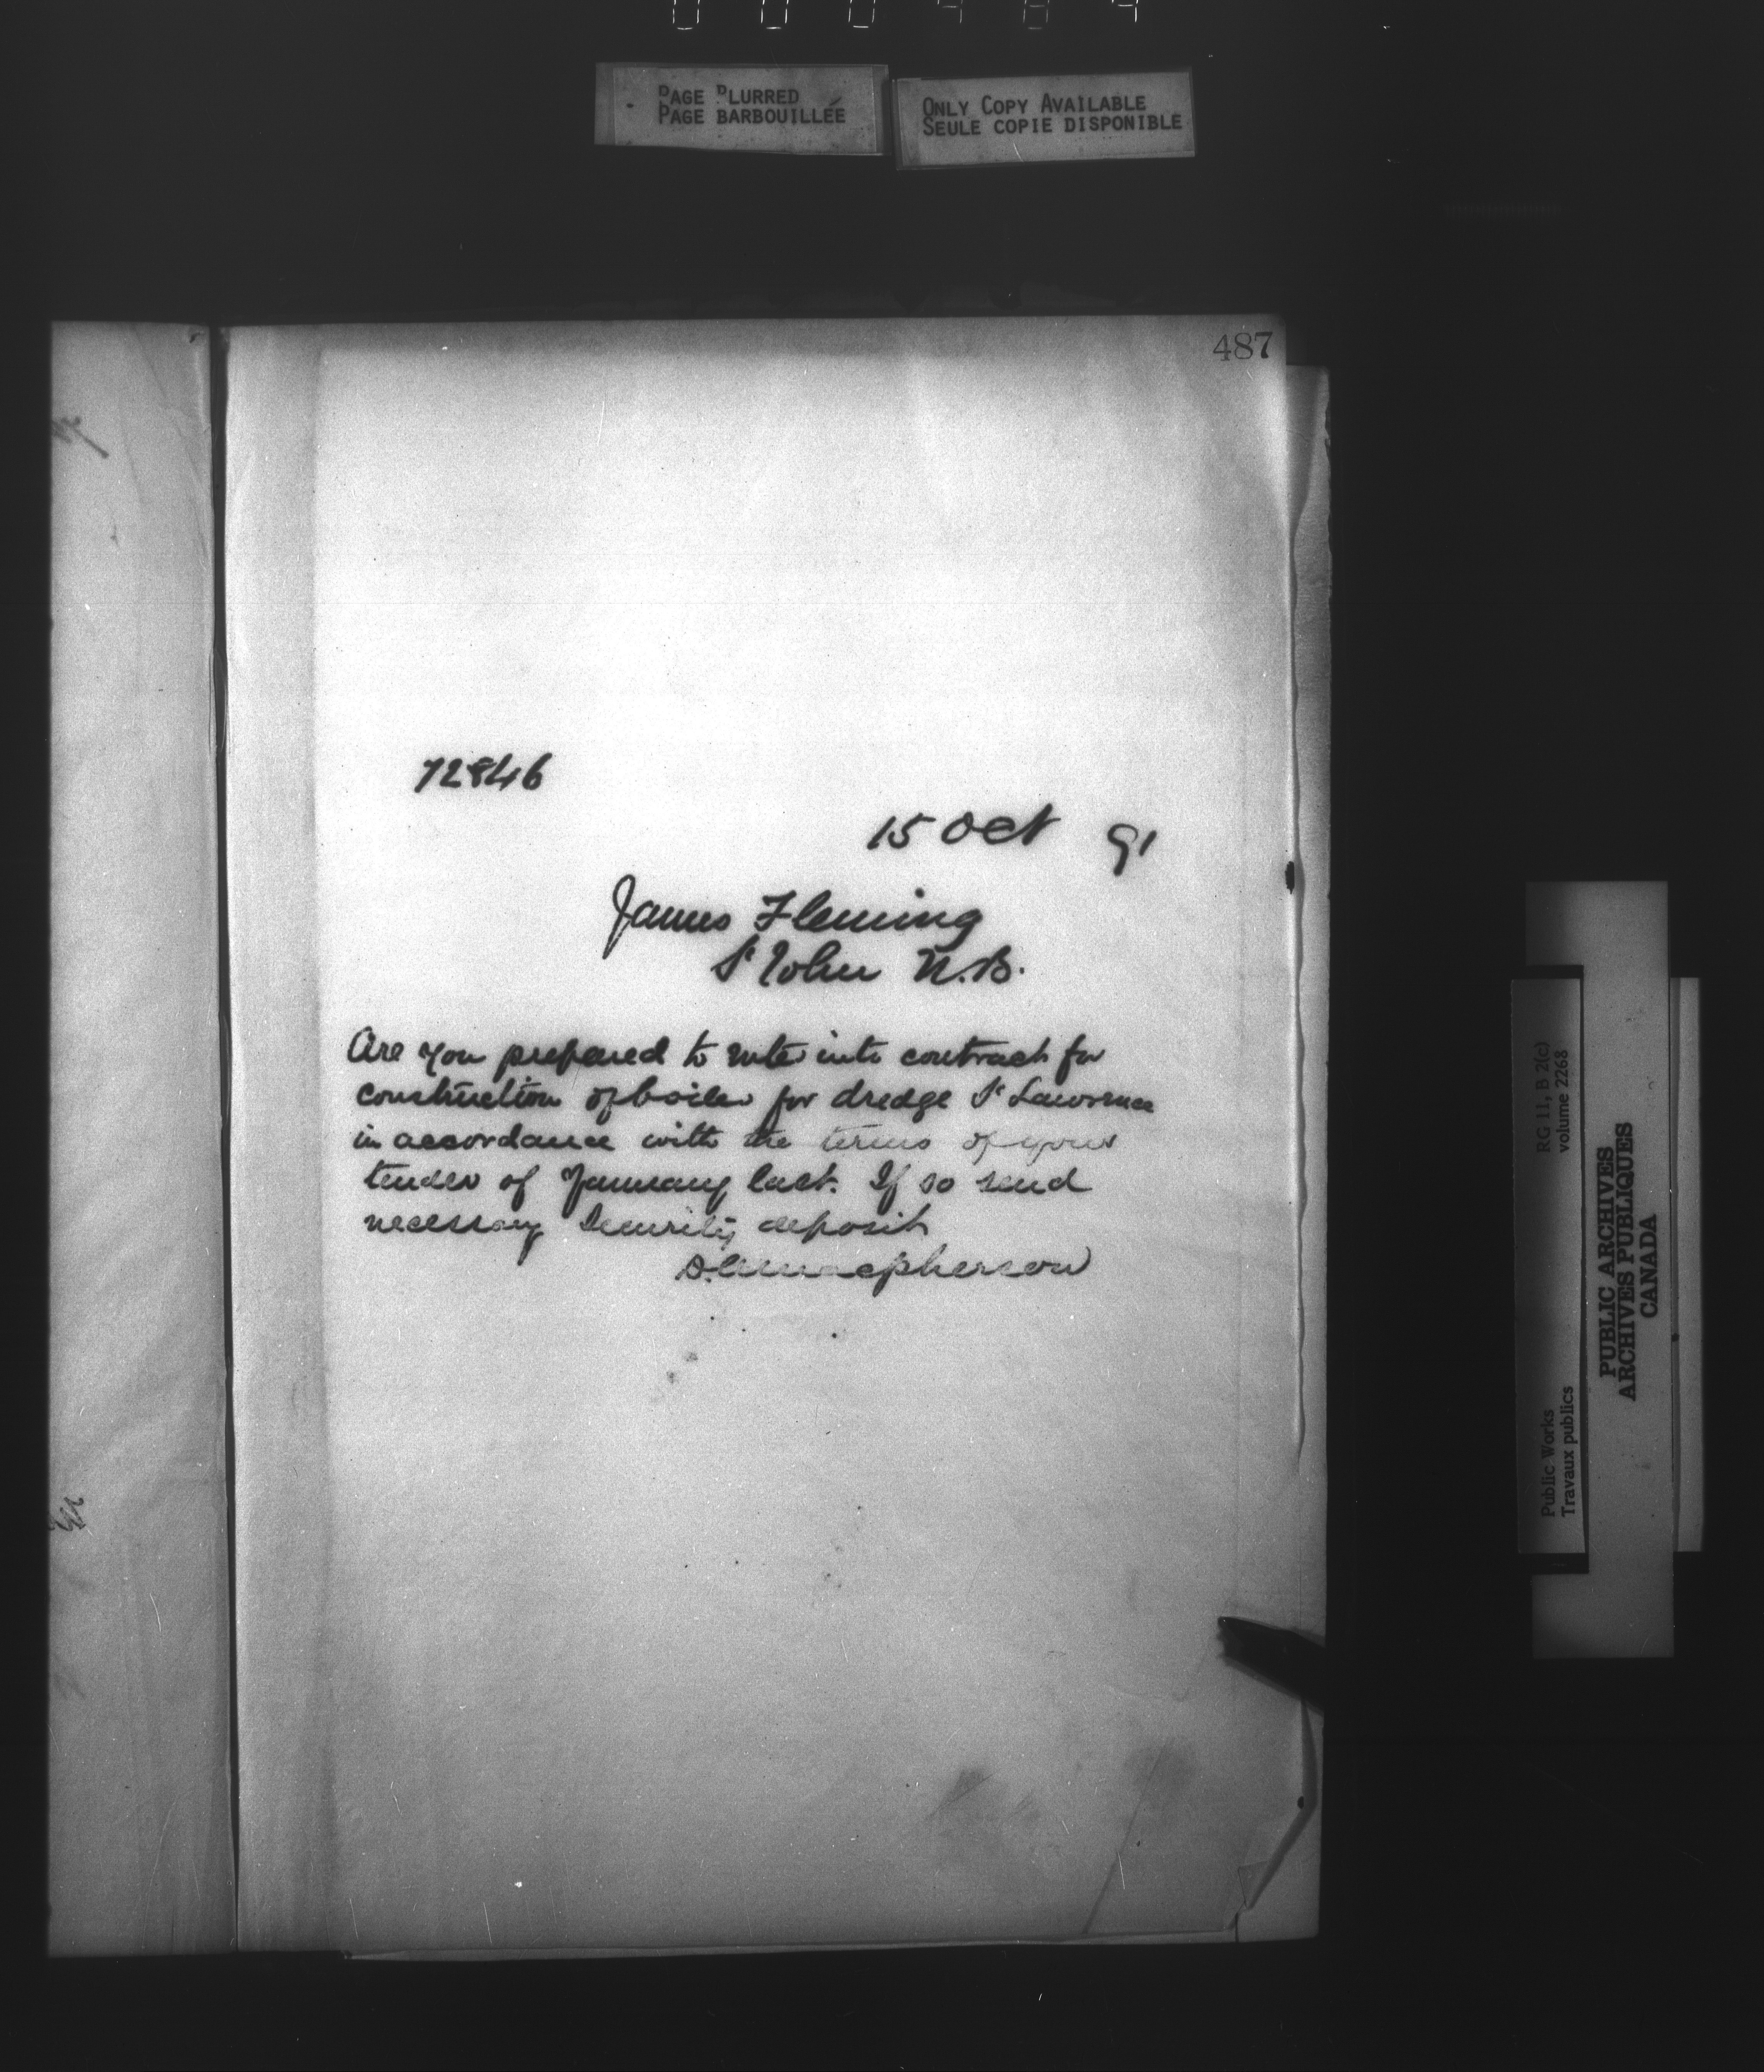 PAGE BLURRED
PAGE BARBOUILLÉE
ONLY COPY AVAILABLE
SEULE COPIE DISPONIBLE
487
72846
15 Oct 91
James Fleming
St John N.B.
Are you prepared to enter into contract for
construction of boiler for dredge St Lawrence
in accordance with the terms of your
tender of January last. If so send
necessary Security deposit
Macpherson
RG 11, B 2(c)
volume 2268
Public Works
Travaux publics
PUBLIC ARCHIVES
ARCHIVES PUBLIQUES
CANADA